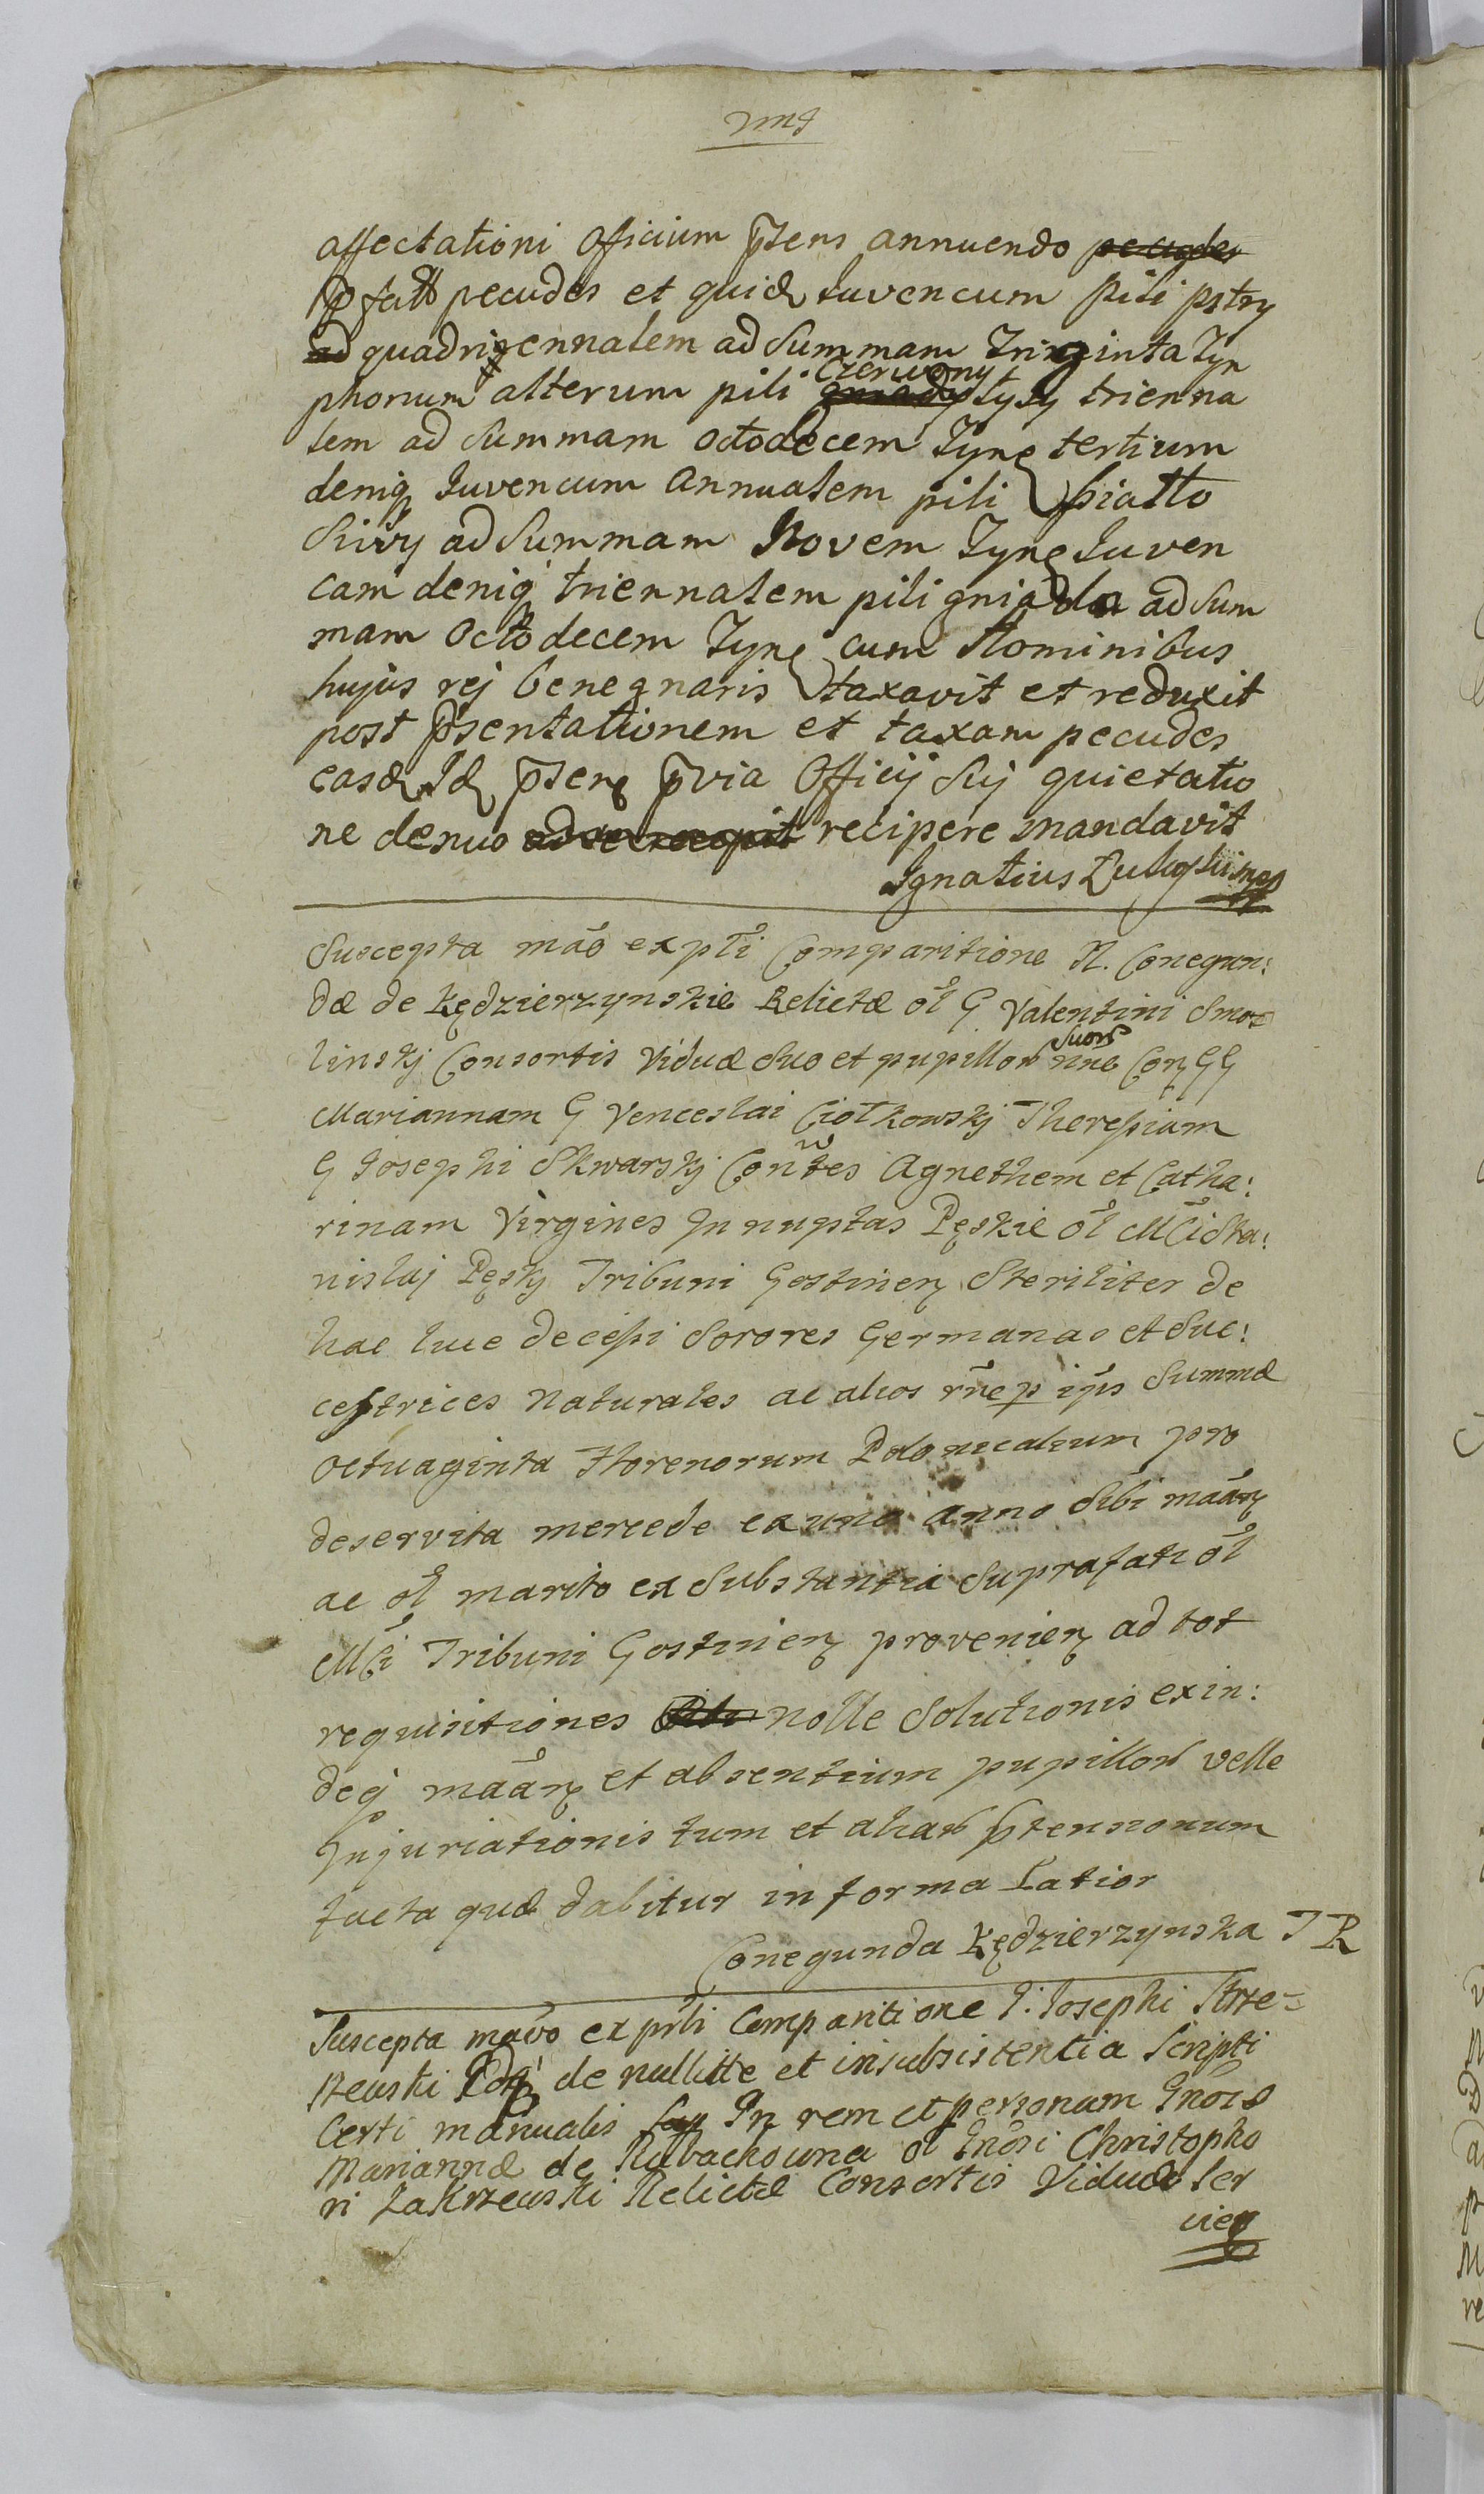 affectationi Officium p̃sens annuendo pecudes
p̃fatt pecudes et quid Juvencum pili pstry
ad quadrigennalem ad Summam Triginta Tyn
phorum alterum pili gniady Czerwony łysy trienna
lem ad Summam octodecem Tyng tertium
deniq Juvencum annualem pili białło
Siwy ad Summam Novem Tyng Juven
cam deniq triennalem pili gniada ad Sum
mam Octodecem Tyng cum Hominibus
hujus rej bene gnaris taxavit et reduxit
post p̃sentationem et taxam pecudes
easd Id p̃seng p̃via Officij Sij quietatio
ne denuo ad se recepit recipere mandavit
Ignatius
Suscepta mão ex płi Comparitione N. Conegun:
dæ de Kędzierzynskie Relictæ ol G Valentini Smo
linskj Consortis Viduæ Suo et pupillor Suor nne Con GG
Mariannam G Venceslai Ciołkowskj Theresiam
G Josephi Skwarskj Contes Agnethem et Catha:
rinam Virgines Innuptas Pęskie ol MCi Sta:
nislaj Pęskj Tribuni Gostinen Steriliter de
hac luce decessi Sorores Germanas et Suc:
cestrices Naturales ac alios rñe p ipis Summæ
Octuaginta Florenorum Polonicalium pro
deservita mercede ex uno anno Sibi mãan
ac ol marito ex Substantia Suprafati ol
MCi Tribuni Gostinien provenien ad tot
requisitiones nolle Solutionis exin:
deq mãan et absentium pupillor velle
Injuriationis tum et aliar p̃tensionum
facta quæ dabitur in forma Latior
Conegunda Kędzierzynska TR
Suscepta mãvo ex pñli Comparitione G: Josephi Strze=
szewski de nullitte et insubsistentia Scripti
Certi manualis In rem et personam Gñosæ
Mariannæ de Rubachowna ol Gñosi Christopho
ri Zakrzewski Relictæ Consortis Viduæ Ser
vien